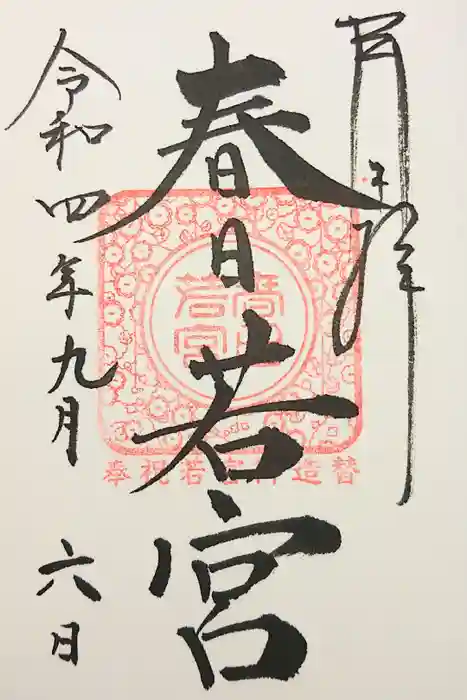 春日若宮
春日
若宮
奉祝若宮御造替
令和四年九月六日